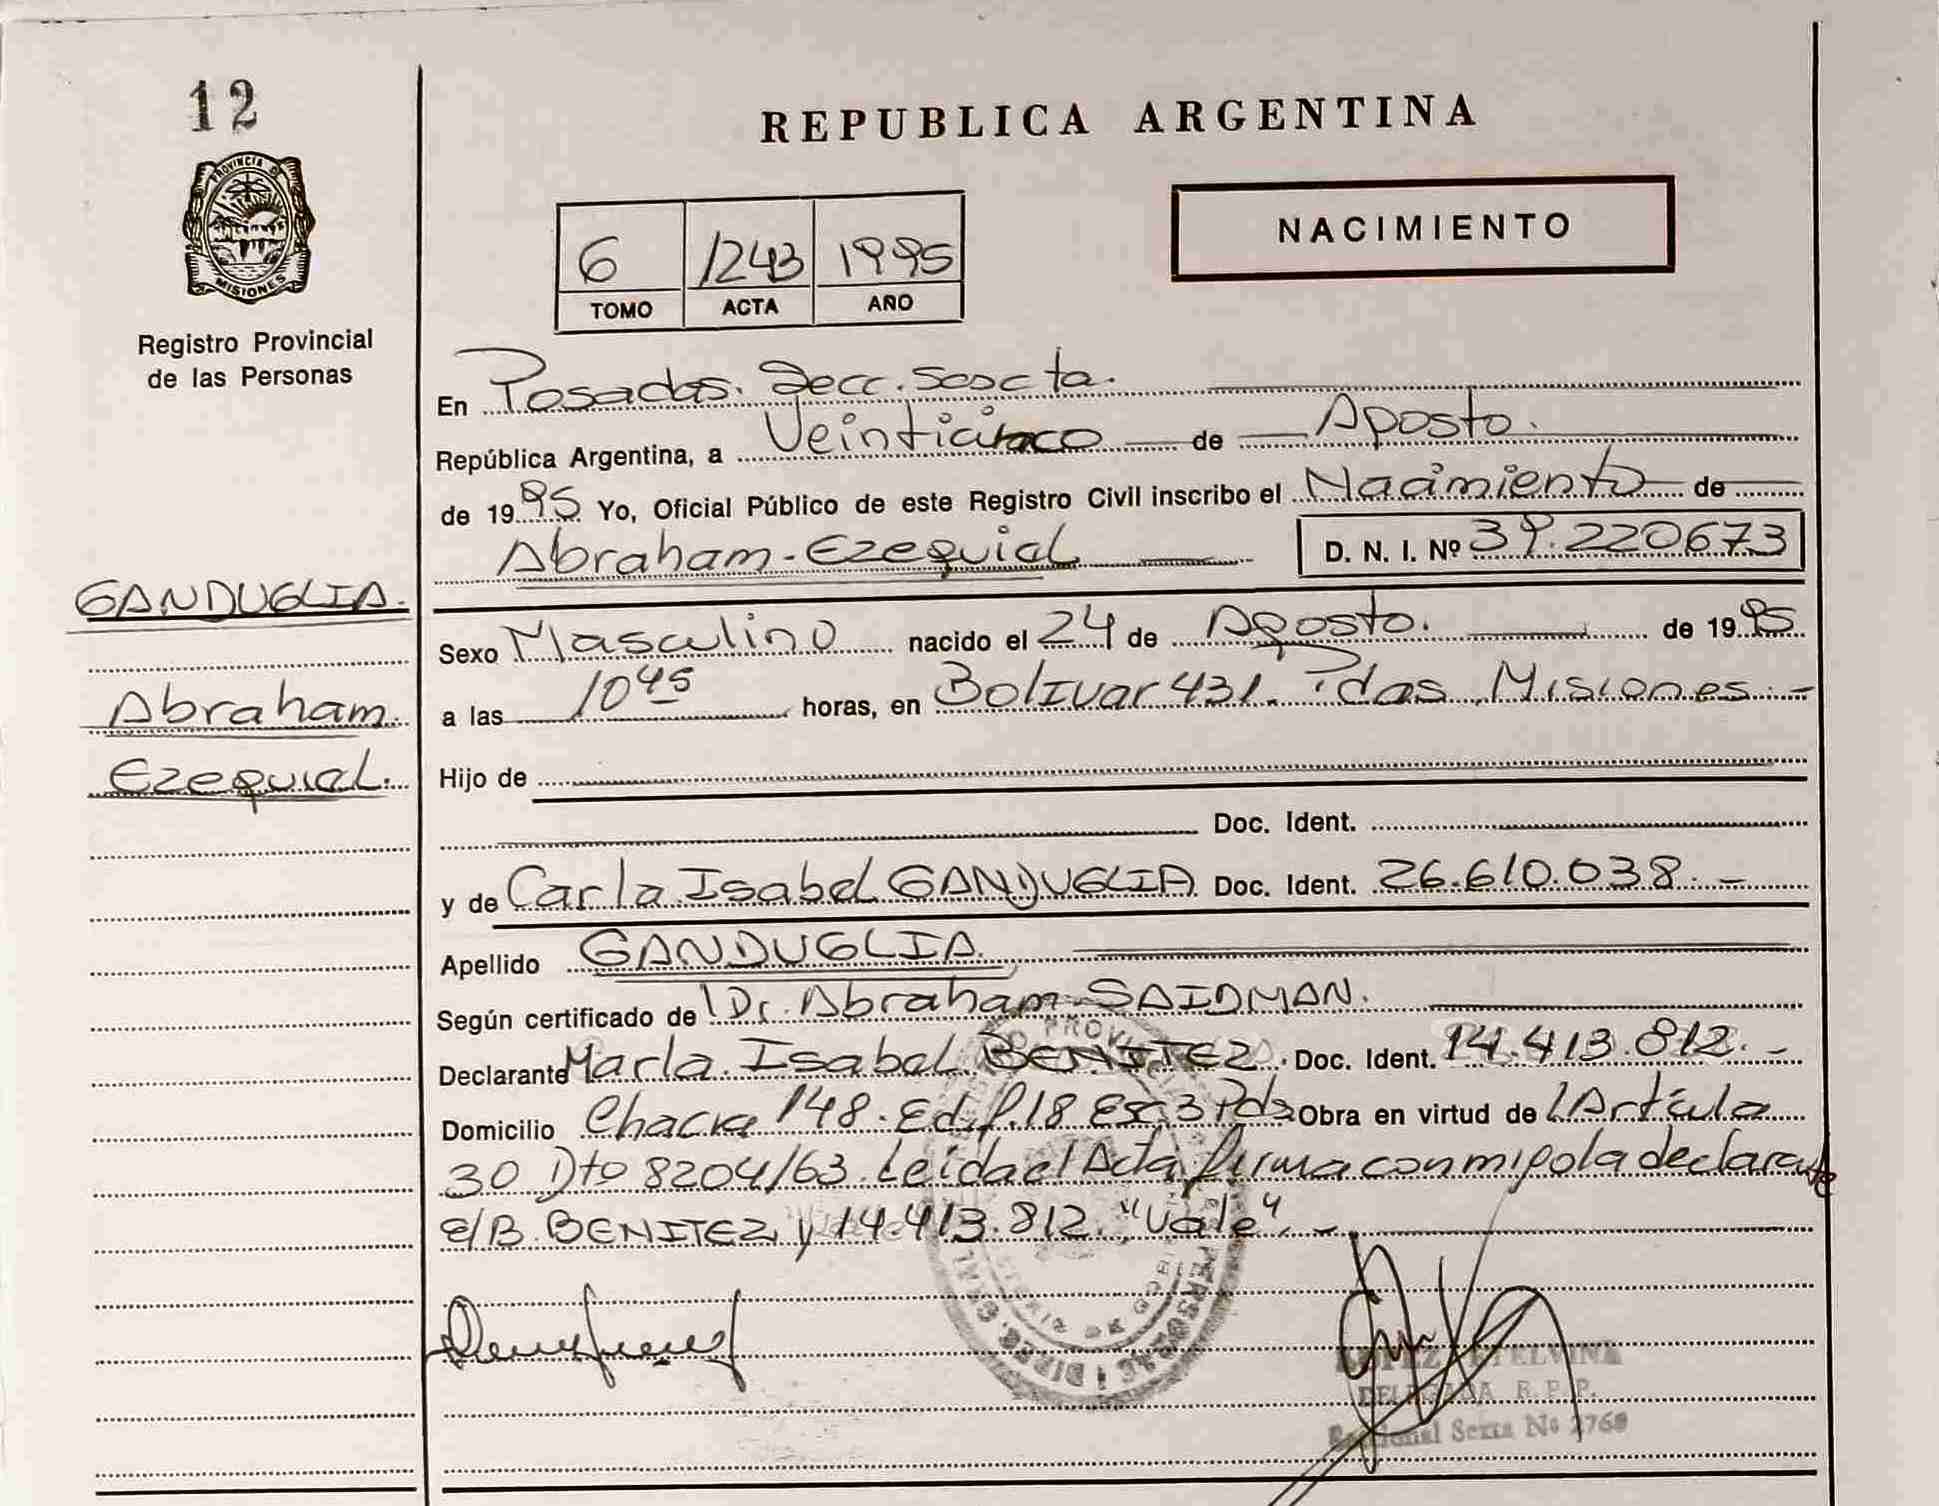 12
PROVINCIA DE
MISIONES
Registro Provincial
de las Personas
GANDUGLIA.
Abraham
Ezequial.
REPUBLICA ARGENTINA
NACIMIENTO
6 1243 1995
TOMO ACTA AÑO
En Posadas. Secc. Sexcta.
República Argentina, a Veinticinco de Agosto.
de 1995 Yo, Oficial Público de este Registro Civil inscribo el Nacimiento de
Abraham-Ezequial D. N. I. Nº 39.220673
Sexo Masculino nacido el 24 de Agosto. de 1995
a las 10 45 horas, en Bolivar 431. Pdas, Misiones.-
Hijo de
Doc. Ident.
y de Carla Isabel GANDUGLIA Doc. Ident. 26.610.038.-
Apellido GANDUGLIA.
Según certificado de Dr. Abraham SAIDMAN.
Declarante Marla Isabel BENITEZ. Doc. Ident. 14.413.812.-
Domicilio Chacra 148. Edif. 18 Esc 3 Pds Obra en virtud de lArtícula
30 Dto 8204/63. Leida el Acta firma conmigo la declarante
e/B. BENITEZ y 14.413.812. "Vale".-
PERSONAS
DIREC. GRAL.
ETELVINA
DELEGADA R. P. P.
Seccional Sexta Nº 2768